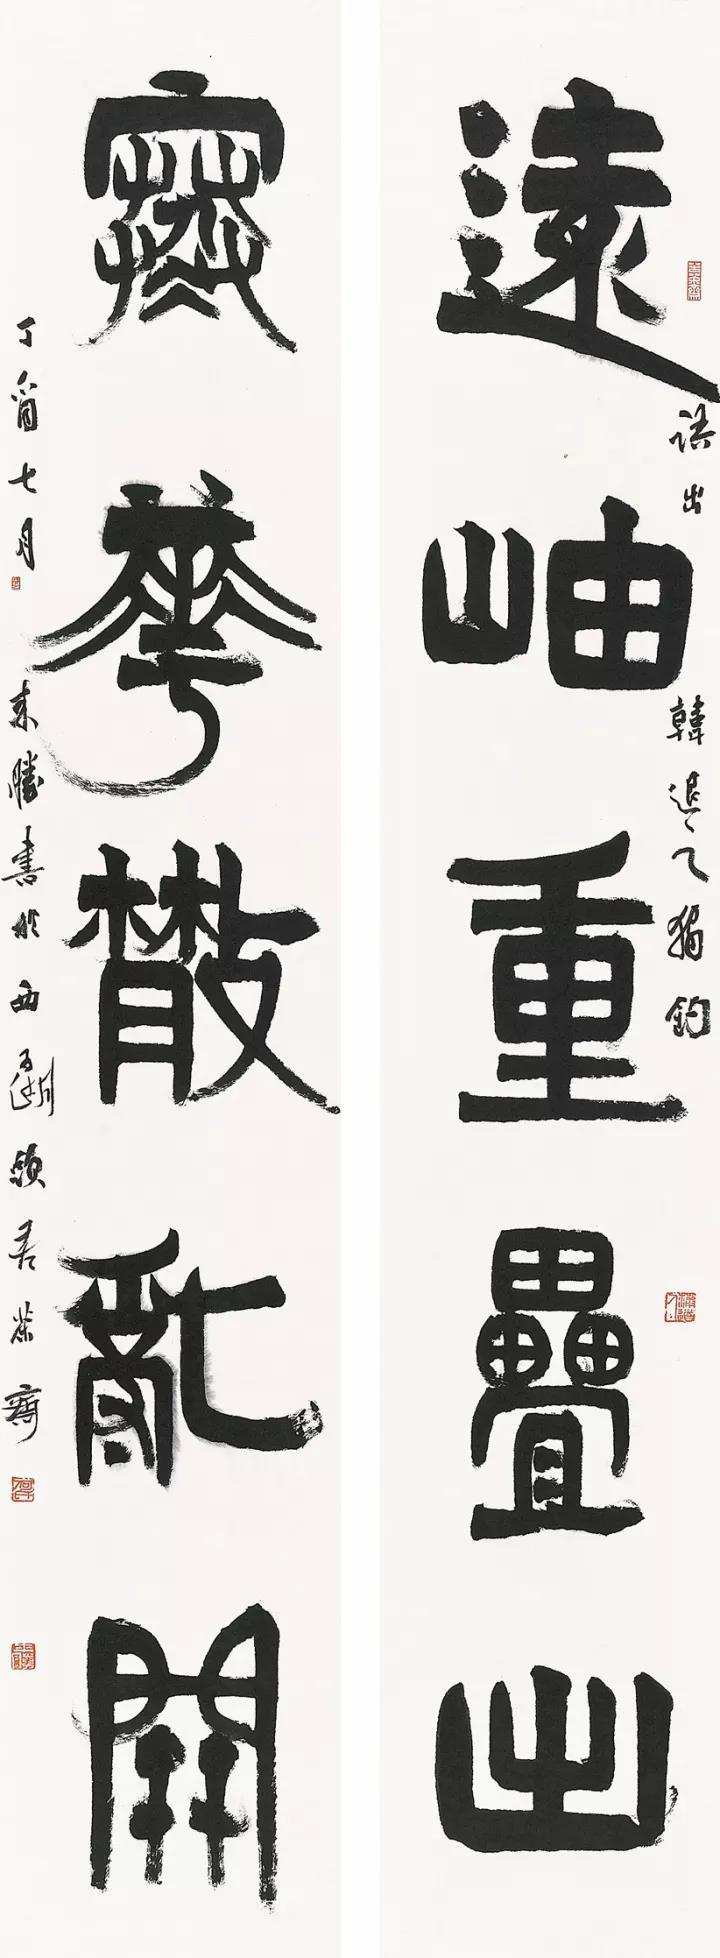 遠岫重疊出
語出韓退之獨釣
寒華散亂開
丁酉七月來勝書於西頭茶齋